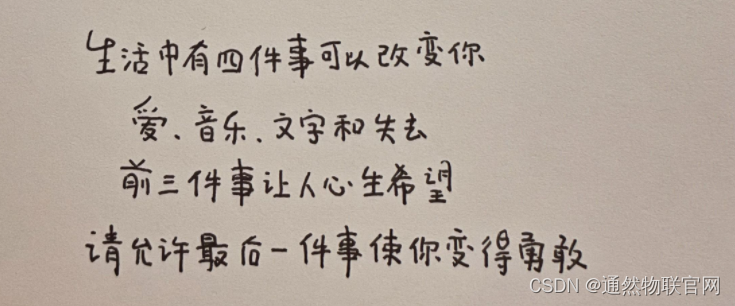 生活中有四件事可以改变你
爱、音乐、文字和失去
前三件事让人心生希望
请允许最后一件事使你变得勇敢
CSDN @通然物联官网